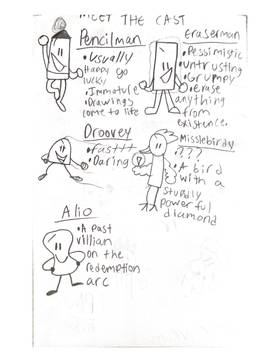 MEET THE CAST
Pencilman
•Usually
Happy go
lucky
•Immature
•Drawings
come to life
Eraserman
•Pessimistic
•Untrusting
•Grumpy
•erase
anything
from
existence.
Droovey
•fasttt
•Daring
Misslebirdy
•???
•A bird
with a
stupidly
powerful
diamond
Alio
•A past
villian
on the
redemption
arc